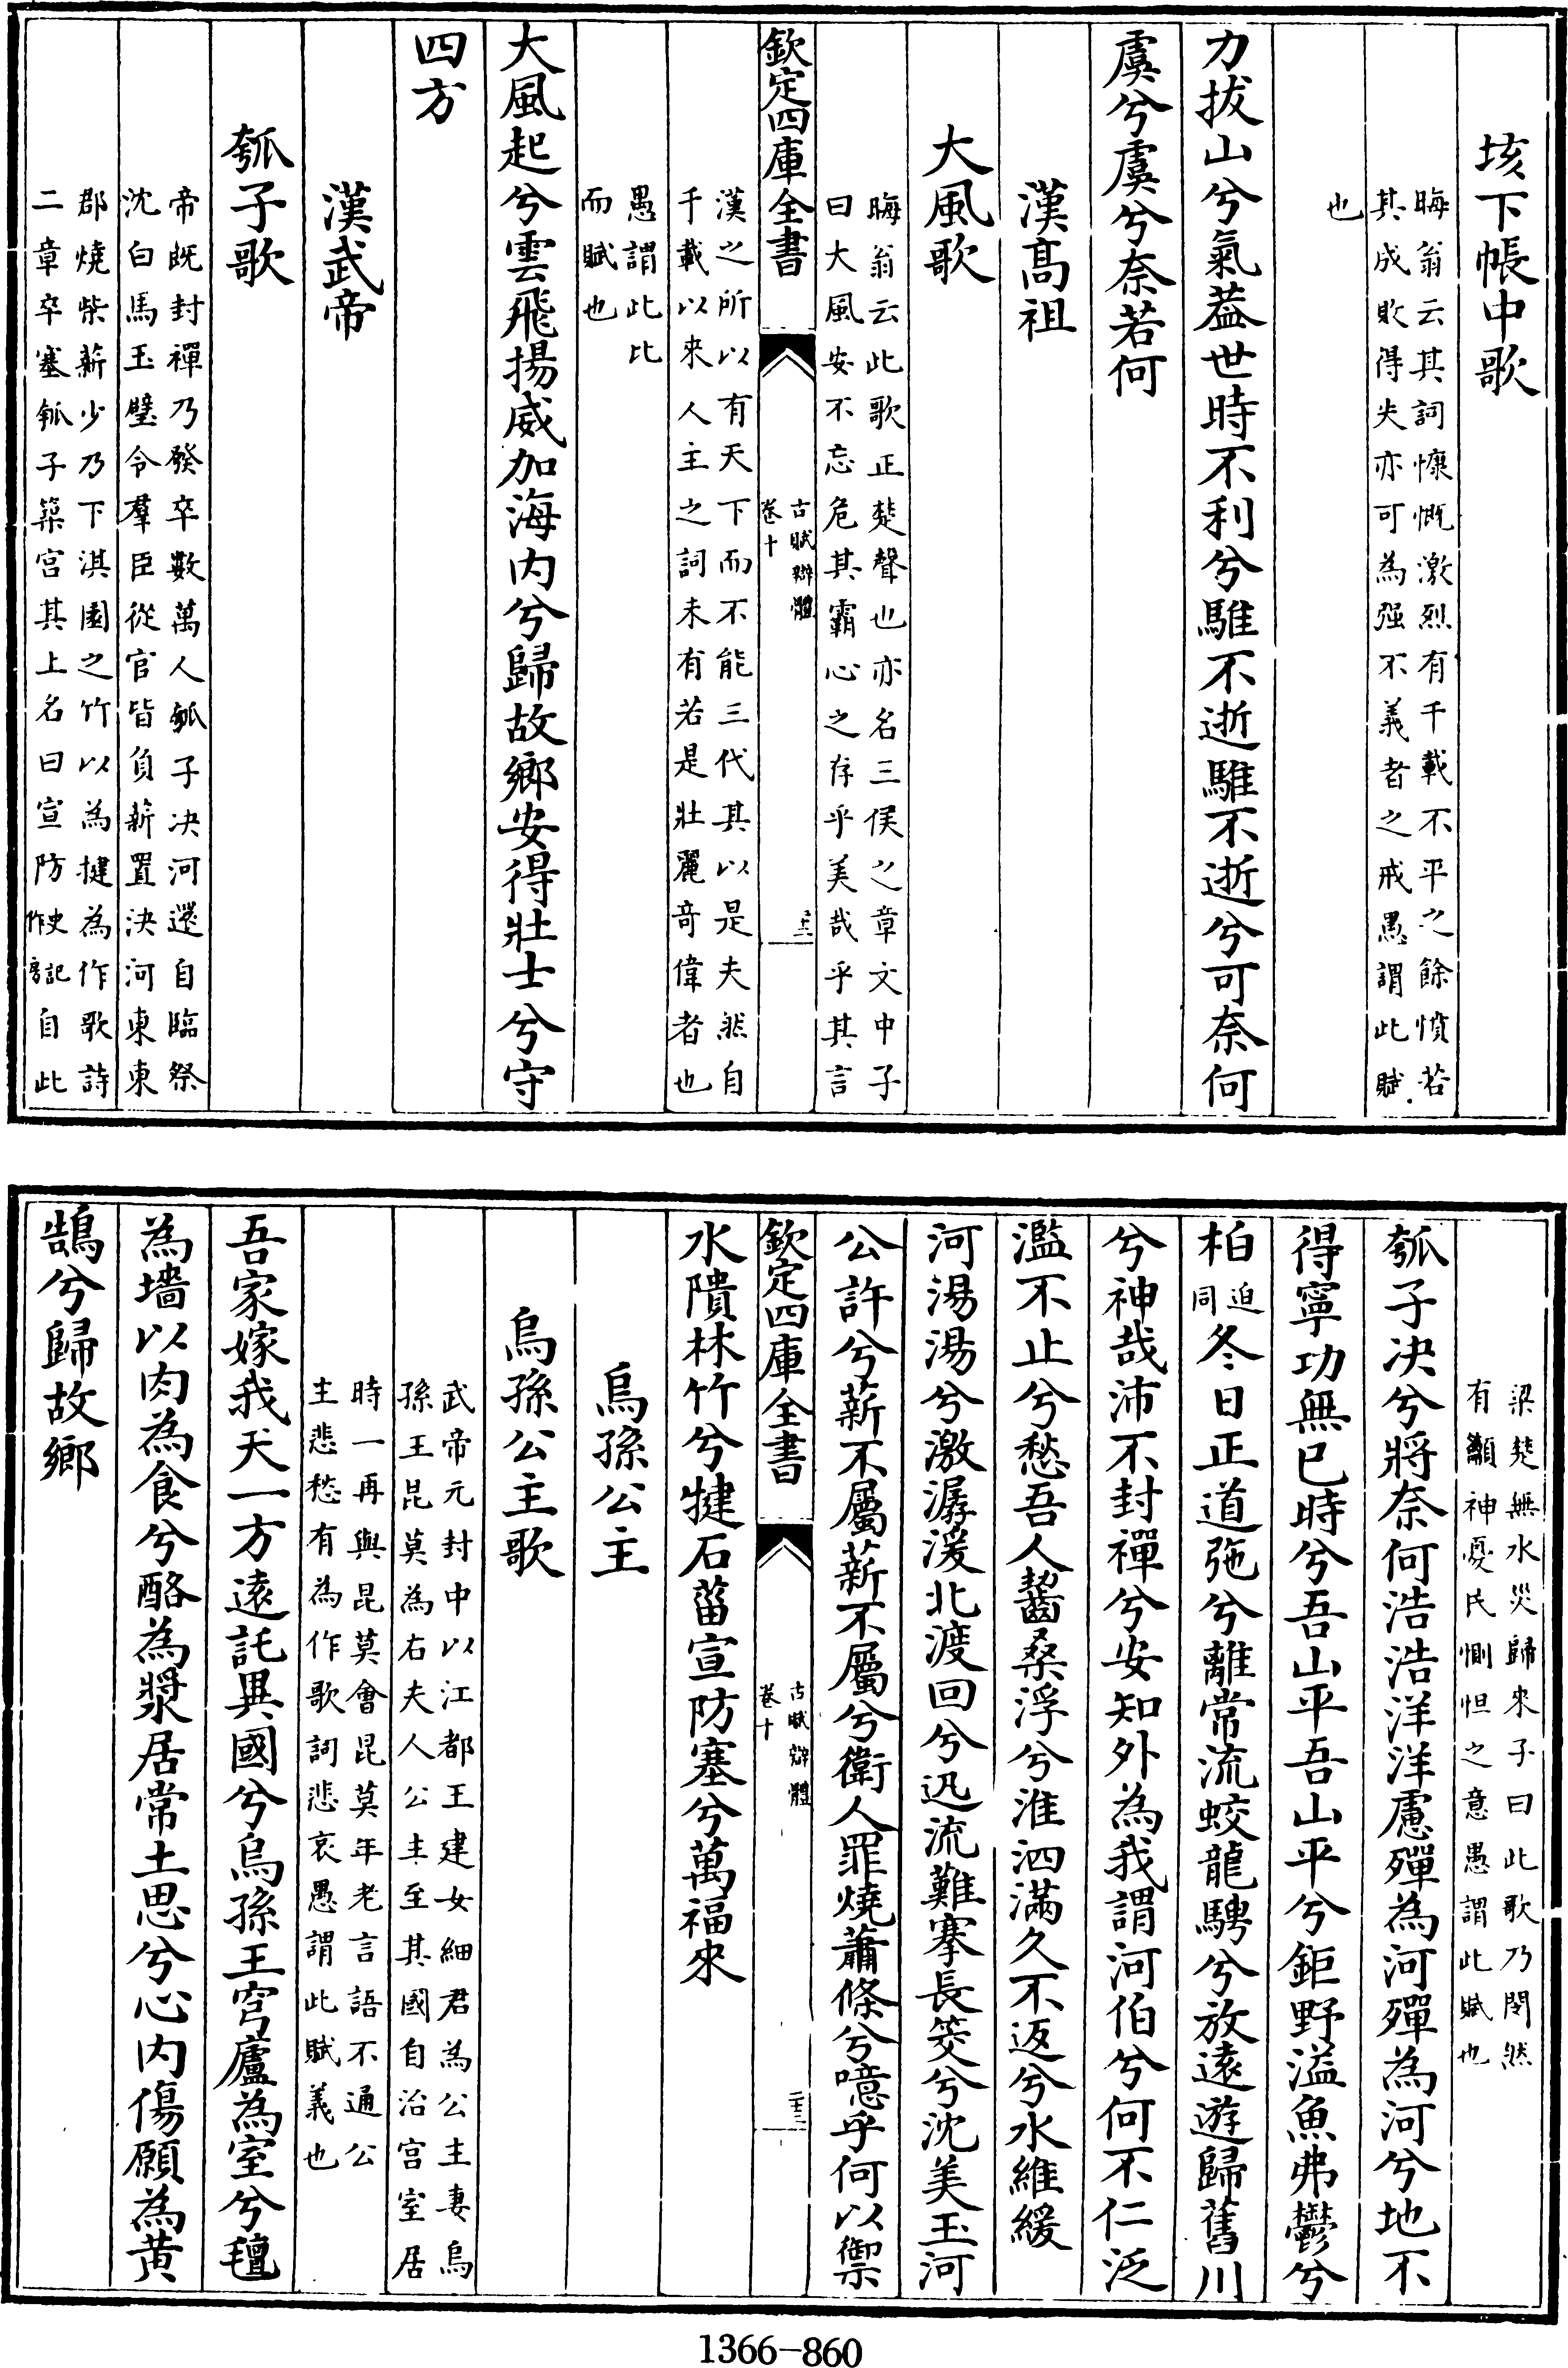 垓下帳中歌
晦翁云其詞慷慨激烈有千載不平之餘憤若
其成敗得失亦可為强不義者之戒愚謂此賦
也
力拔山兮氣葢世時不利兮騅不逝騅不逝兮可奈何
虞兮虞兮奈若何
漢髙祖
大風歌
晦翁云此歌正楚聲也亦名三侯之章文中子
曰大風安不忘危其霸心之存乎美哉乎其言
欽定四庫全書
古賦辯體
卷十
漢之所以有天下而不能三代其以是夫然自
千載以來人主之詞未有若是壯麗竒偉者也
愚謂此比
而賦也
大風起兮雲飛揚威加海内兮歸故鄉安得壯士兮守
四方
漢武帝
瓠子歌
帝既封禪乃發卒數萬人瓠子决河還自臨祭
沈白馬玉璧令羣臣從官皆負薪置決河東東
郡燒柴薪少乃下淇園之竹以為揵為作歌詩
二章卒塞瓠子築宫其上名曰宣防史記作房自此
梁楚無水災歸來子曰此歌乃閔然
有籲神憂民惻怛之意愚謂此賦也
瓠子决兮將奈何浩浩洋洋慮殫為河殫為河兮地不
得寧功無已時兮吾山平吾山平兮鉅野溢魚弗鬱兮
柏迫同冬日正道弛兮離常流蛟龍騁兮放遠遊歸舊川
兮神哉沛不封禪兮安知外為我謂河伯兮何不仁泛
濫不止兮愁吾人齧桑浮兮淮泗滿久不返兮水維緩
河湯湯兮激潺湲北渡回兮迅流難搴長筊兮沈美玉河
公許兮薪不屬薪不屬兮衛人罪燒蕭條兮噫乎何以禦
欽定四庫全書
古賦辯體
卷十
水隤林竹兮揵石菑宣防塞兮萬福來
烏孫公主
烏孫公主歌
武帝元封中以江都王建女細君為公主妻烏
孫王昆莫為右夫人公主至其國自治宫室居
時一再與昆莫會昆莫年老言語不通公
主悲愁有為作歌詞悲哀愚謂此賦義也
吾家嫁我天一方遠託異國兮烏孫王穹廬為室兮氊
為墻以肉為食兮酪為漿居常土思兮心内傷願為黄
鵠兮歸故鄉
1366-860